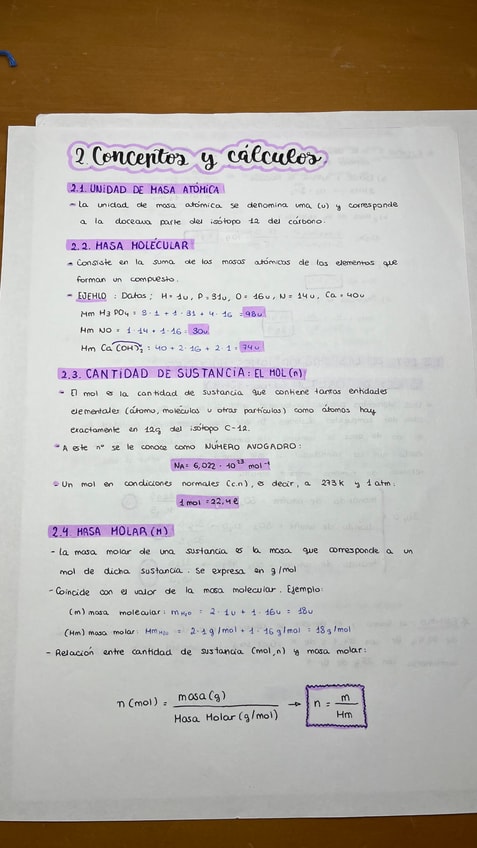 2. Conceptos y cálculos
2.1. UNIDAD DE MASA ATÓMICA
- La unidad de masa atómica se denomina uma (u) y corresponde
a la doceava parte del isótopo 12 del carbono.
2.2. MASA MOLECULAR
- Consiste en la suma de las masas atómicas de los elementos que
forman un compuesto.
- EJEMPLO: Datos; H = 1u, P = 31u, O = 16u, N = 14u, Ca = 40u
Mm H3PO4 = 3·1 + 1·31 + 4·16 = 98u
Mm NO = 1·14 + 1·16 = 30u
Mm Ca(OH)2 : 40 + 2·16 + 2·1 = 74u
2.3. CANTIDAD DE SUSTANCIA: EL MOL (n)
- El mol es la cantidad de sustancia que contiene tantas entidades
elementales (átomo, moléculas u otras partículas) como átomos hay
exactamente en 12g del isótopo C-12.
- A este nº se le conoce como NÚMERO AVOGADRO:
NA = 6,022 · 10²³ mol⁻¹
- Un mol en condiciones normales (c.n), es decir, a 273k y 1 atm:
1 mol = 22,4 ℓ
2.4. MASA MOLAR (M)
- La masa molar de una sustancia es la masa que corresponde a un
mol de dicha sustancia. Se expresa en g/mol
- Coincide con el valor de la masa molecular. Ejemplo:
(m) masa molecular: mH2O = 2·1u + 1·16u = 18u
(Mm) masa molar: MmH2O = 2·1g/mol + 1·16 g/mol = 18g/mol
- Relación entre cantidad de sustancia (mol, n) y masa molar:
n (mol) = masa (g) / Masa Molar (g/mol) → n = m / Mm